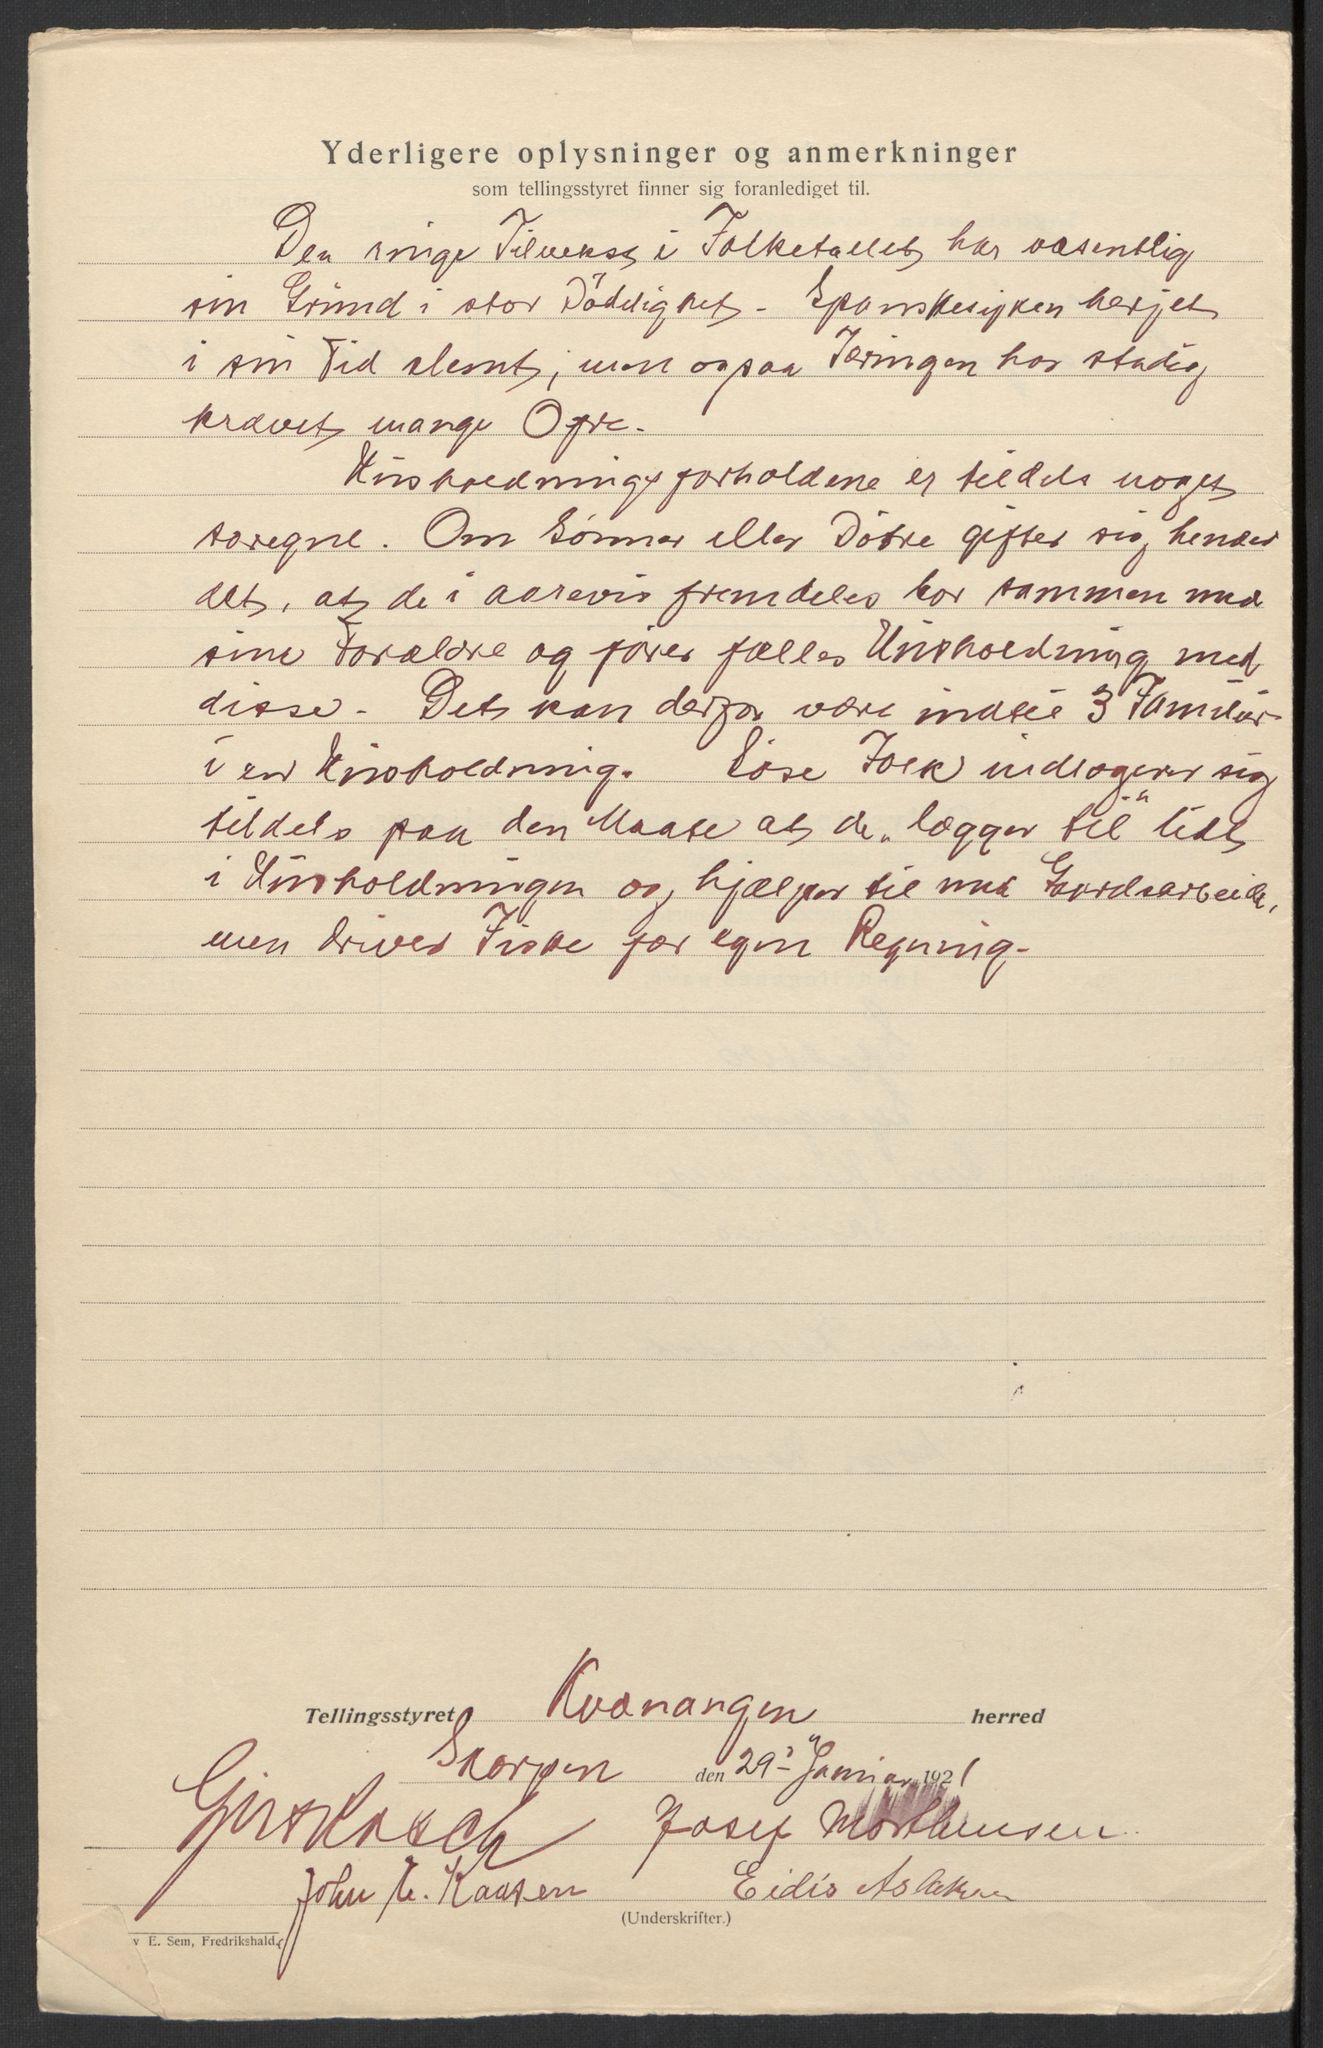 Yderligere oplysninger og anmerkninger
som tellingsstyret finner sig foranlediget til.
Den ringe Tilvekst i Folketallet har væsentlig
sin Grund i stor Dödelighet. Spanskesyken herjet
i sin Tid slemt, men ogsaa Tæringen har stadig
krævet mange Ofre.
Husholdningsforholdene er tildels noget
særegne. Om Sönner eller Dötre gifter sig, hender
det, at de i aarevis fremdeles bor sammen med
sine Forældre og förer fælles Husholdning med
disse. Det kan derfor være indtil 3 Familier
i en Husholdning. Löse Folk indlogerer sig
tildels paa den Maate at de „lægger til" litt
i Husholdningen og hjælper til med Gaardsarbeide,
men driver Fiske for egen Regning.
Tellingsstyret Kvænangen herred
Skorpen den 29' Januar 1921
Josef Mortensen
John E. Kaasen Eidis Aslaksen
(Underskrifter.)
v E. Sem, Fredrikshald.